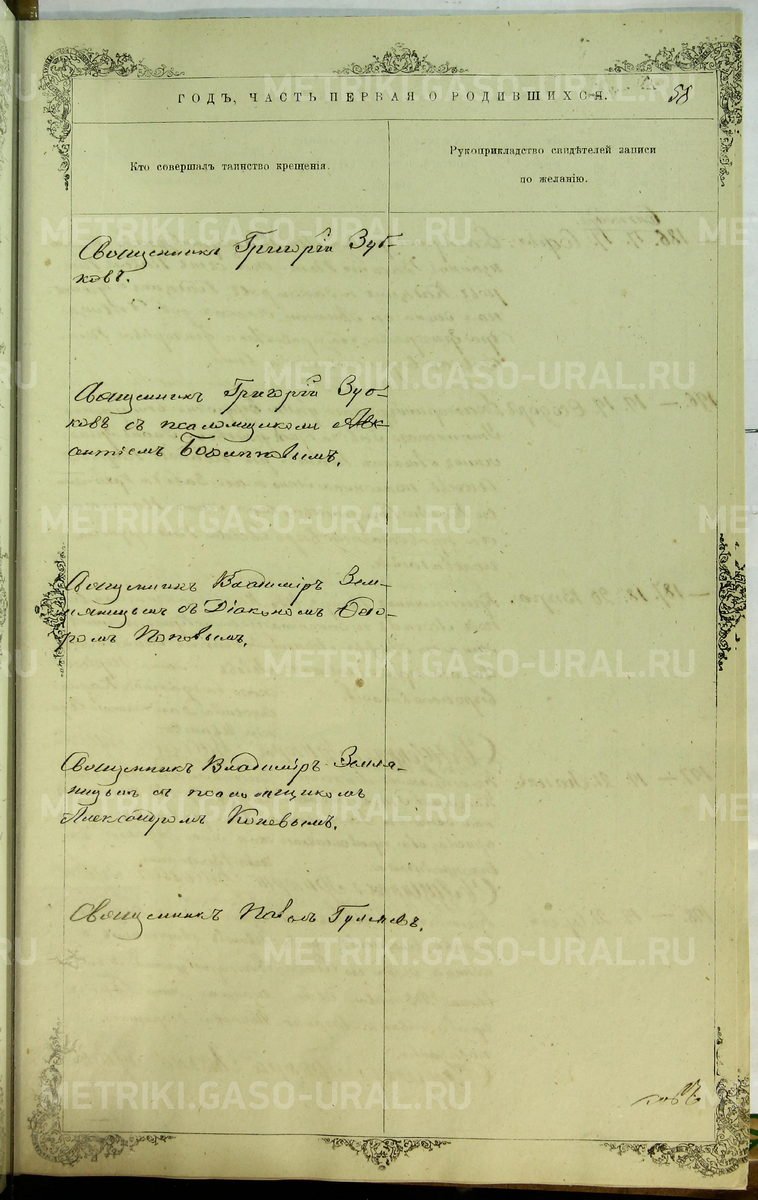 ГОДЪ, ЧАСТЬ ПЕРВАЯ О РОДИВШИХСЯ.
58
Кто совершалъ таинство крещенія.
Рукоприкладство свидѣтелей записи
по желанію.
Священникъ Григорій Зуб-
ковъ.
Священникъ Григорій Зуб-
ковъ съ псаломщикомъ
Священникъ Владиміръ Зем-
ляницынъ съ Діакономъ Ѳедо-
ромъ Поповымъ.
Священникъ Владиміръ Земля-
ницынъ съ псаломщикомъ
Александромъ Коневымъ.
Священникъ Павелъ
METRIKI.GASO-URAL.RU